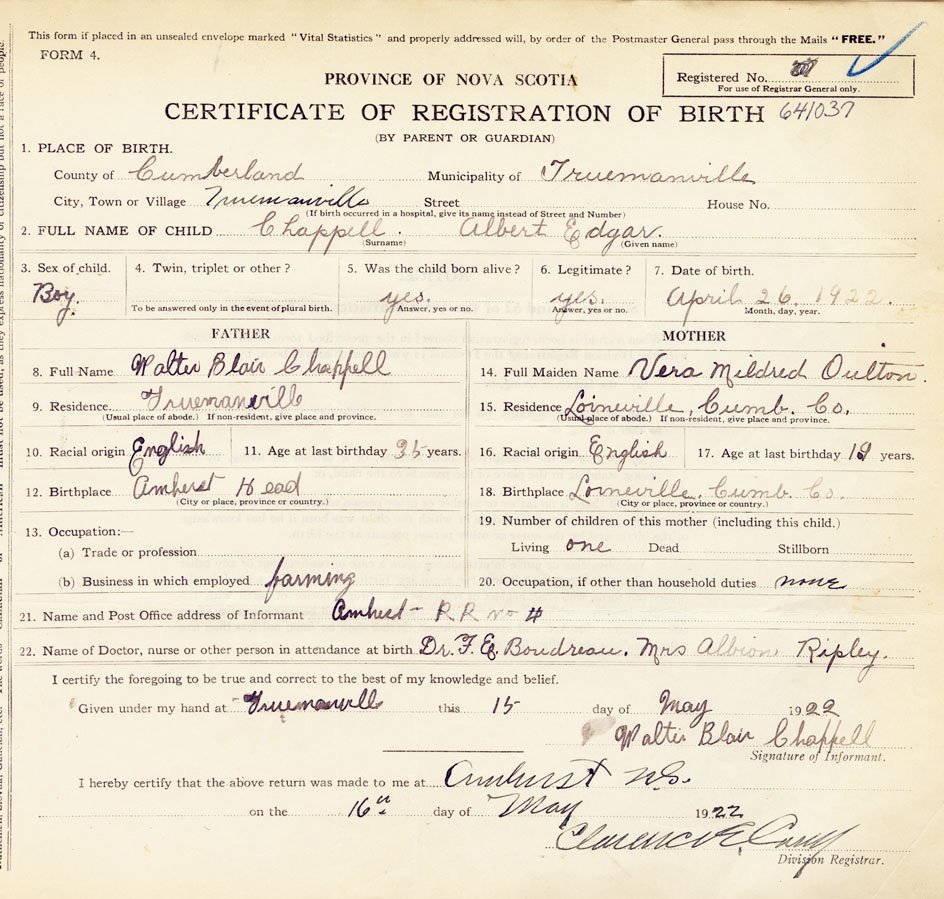 This form if placed in an unsealed envelope marked "Vital Statistics" and properly addressed will, by order of the Postmaster General pass through the Mails "FREE."
FORM 4.
PROVINCE OF NOVA SCOTIA
Registered No.
For use of Registrar General only.
CERTIFICATE OF REGISTRATION OF BIRTH 641037
(BY PARENT OR GUARDIAN)
1. PLACE OF BIRTH.
County of Cumberland Municipality of Truemanville
City, Town or Village Truemanville Street House No.
(If birth occurred in a hospital, give its name instead of Street and Number)
2. FULL NAME OF CHILD Chappell. Albert Edgar.
(Surname) (Given name)
3. Sex of child. 4. Twin, triplet or other? 5. Was the child born alive? 6. Legitimate? 7. Date of birth.
Boy. yes. yes. April 26. 1922.
To be answered only in the event of plural birth. Answer, yes or no. Answer, yes or no. Month, day, year.
FATHER MOTHER
8. Full Name Walter Blair Chappell 14. Full Maiden Name Vera Mildred Oulton.
9. Residence. Truemanville 15. Residence Lorneville, Cumb. Co.
(Usual place of abode.) If non-resident, give place and province. (Usual place of abode.) If non-resident, give place and province.
10. Racial origin English 11. Age at last birthday 35 years. 16. Racial origin English 17. Age at last birthday years.
12. Birthplace Amherst Head 18. Birthplace Lorneville, Cumb. Co.
(City or place, province or country.) (City or place, province or country.)
13. Occupation:— 19. Number of children of this mother (including this child.)
(a) Trade or profession Living one Dead Stillborn
(b) Business in which employed farming 20. Occupation, if other than household duties none
21. Name and Post Office address of Informant Amhest - R R no 4
22. Name of Doctor, nurse or other person in attendance at birth Dr. F. E. Boudreau. Mrs Albion Ripley.
I certify the foregoing to be true and correct to the best of my knowledge and belief.
Given under my hand at Truemanvill this 15 day of May 1922
Walter Blair Chappell
Signature of Informant.
I hereby certify that the above return was made to me at Amhurst N.S.
on the 16th day of May 1922
Clarence E
Division Registrar.